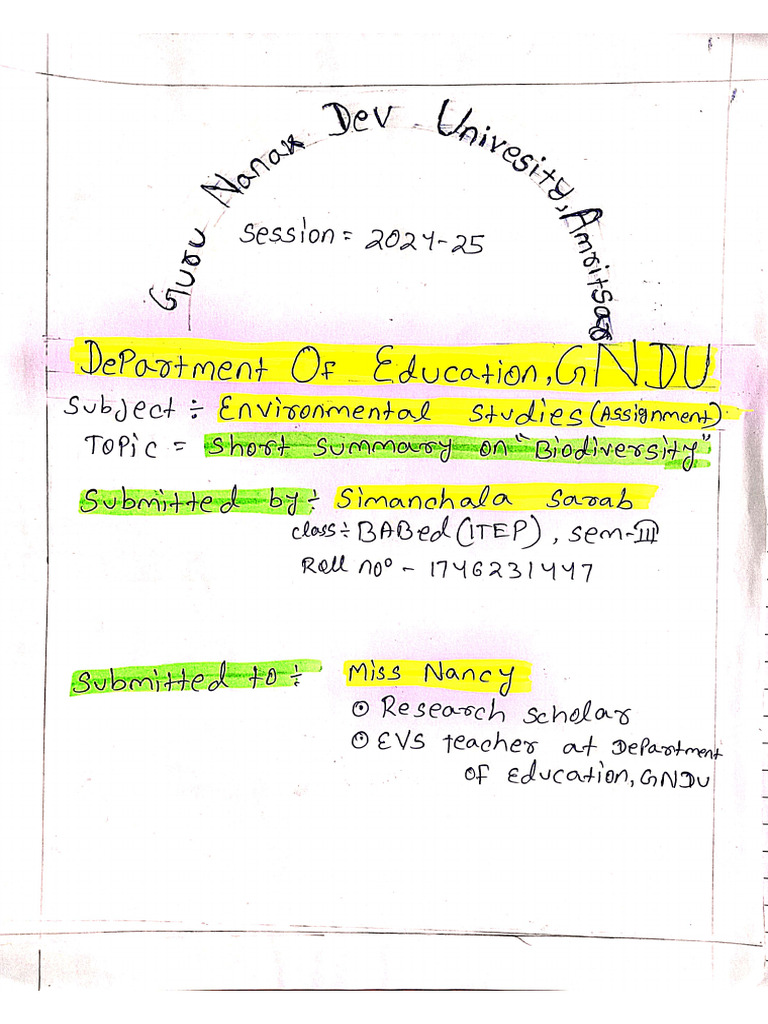 Guru Nanak Dev Univesity, Amritsar
Session = 2024-25
Department Of Education, GNDU
Subject ÷ Environmental Studies (Assignment)
Topic = Short Summary on "Biodiversity"
Submitted by ÷ Simanchala Sarab
class ÷ BABed (ITEP), sem-III
Roll no - 1746231447
Submitted to ÷ Miss Nancy
⊙ Research scholar
⊙ EVS teacher at Department
of Education, GNDU